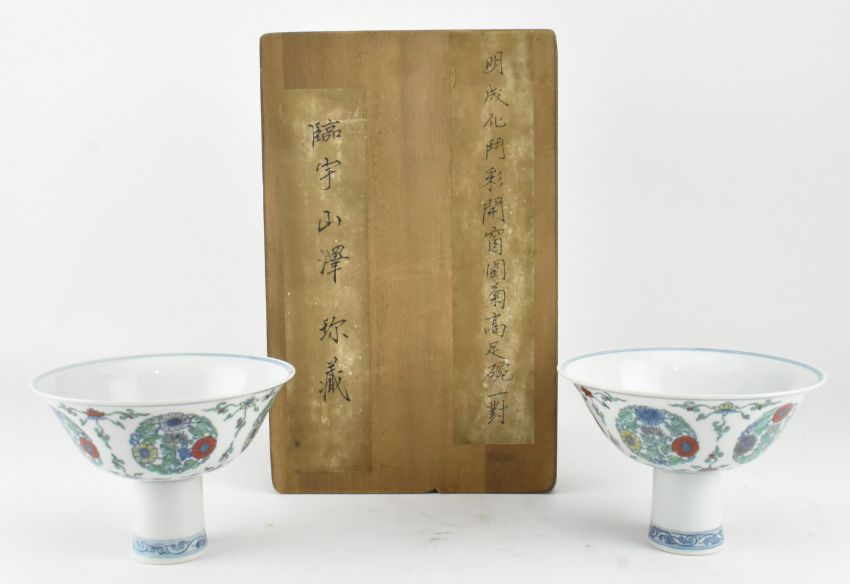 明成化鬥彩開窗團菊高足碗一對
臨宇山澤珍藏